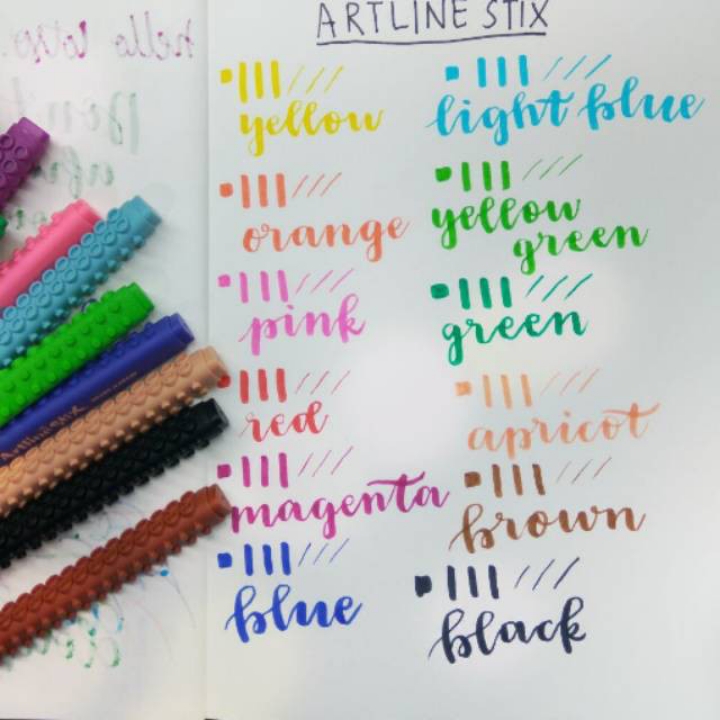 ARTLINE STIX
yellow
orange
pink
red
magenta
blue
light blue
yellow
green
green
apricot
brown
black
hello
Artline Stix